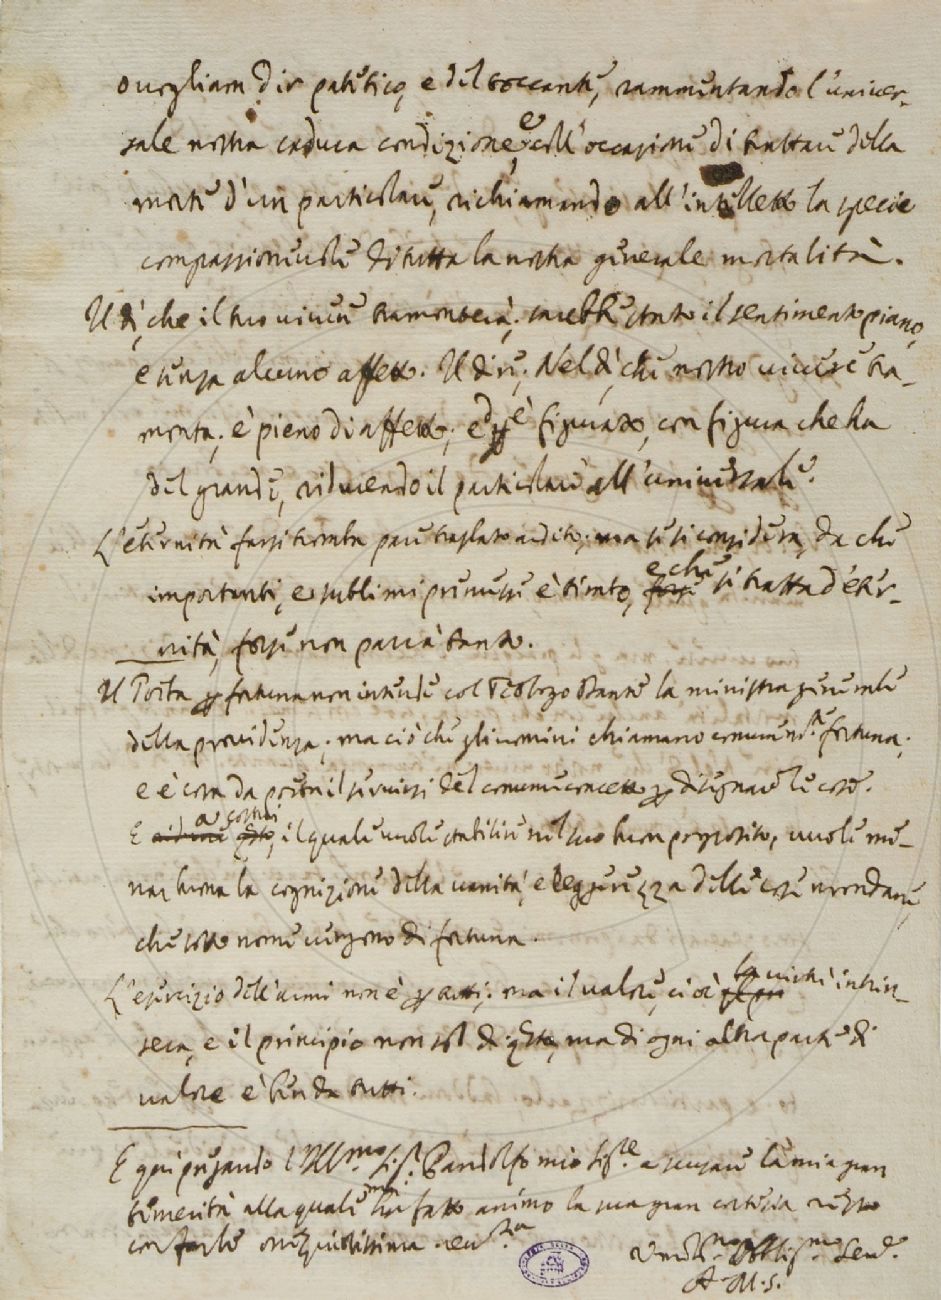 o vogliam dir patetico, e del toccante, rammentando l'univer-
sale nostra caduca condizione, e coll'occasione di trattare della
morte d'un particolare, richiamando all'intelletto la specie
compassionevole di tutta la nostra generale mortalità.
Il dì, che il tuo vivere tramonterà; sarebbe stato il sentimento piano,
e senza alcuno affetto. Il dire; Nel dì, che nostro vivere tra-
monta; è pieno di affetto; e di più è figurato, con figura che ha
del grande, riducendo il particolare all'universale.
L'eternità farsi tromba pare traslato ardito; ma se si considera, da che
importanti, e sublimi premesse è tirato, e che si tratta d'eter-
nità, forse non parrà tanto.
Il Poeta p fortuna non intende col Teologo Dante la ministra generale
della providenza; ma ciò che gli uomini chiamano comunem.te fortuna;
e è cosa da poeta il servirsi del comune concetto p disegnare le cose.
E a costui, il quale vuole stabilire nel suo buon proposito, vuole me-
nar buona la cognizione della vanità, e leggerezza delle cose mondane,
che sotto nome vengono di fortuna.
L'esercizio dell'armi non è p tutti; ma il valore, cioè la virtù intrin-
seca, e il principio non sol di questo, ma di ogni altra parte di
valore è ben da tutti.
E qui pregando l'Ill.mo Sig. Pandolfo mio Sig.re a scusare la mia gran
temerità alla quale mi ha fatto animo la sua gran cortesia resto
con farle ossequiosissima rev.za
Umiliss.mo Obblig.mo Serv.e
A. M. S.